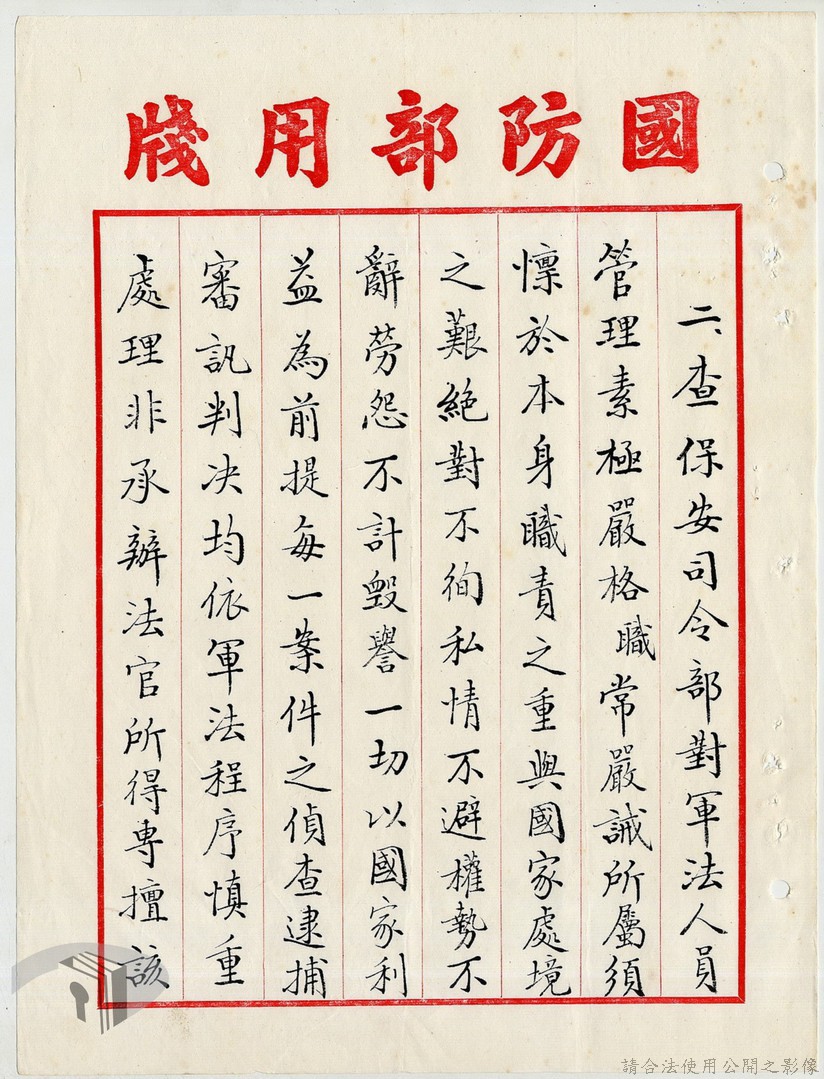 國防部用牋
二、查保安司令部對軍法人員
管理素極嚴格職常嚴誡所屬須
懍於本身職責之重與國家處境
之艱絕對不徇私情不避權勢不
辭勞怨不計毀譽一切以國家利
益為前提每一案件之偵查逮捕
審訊判决均依軍法程序慎重
處理非承辦法官所得專擅該
請合法使用公開之影像